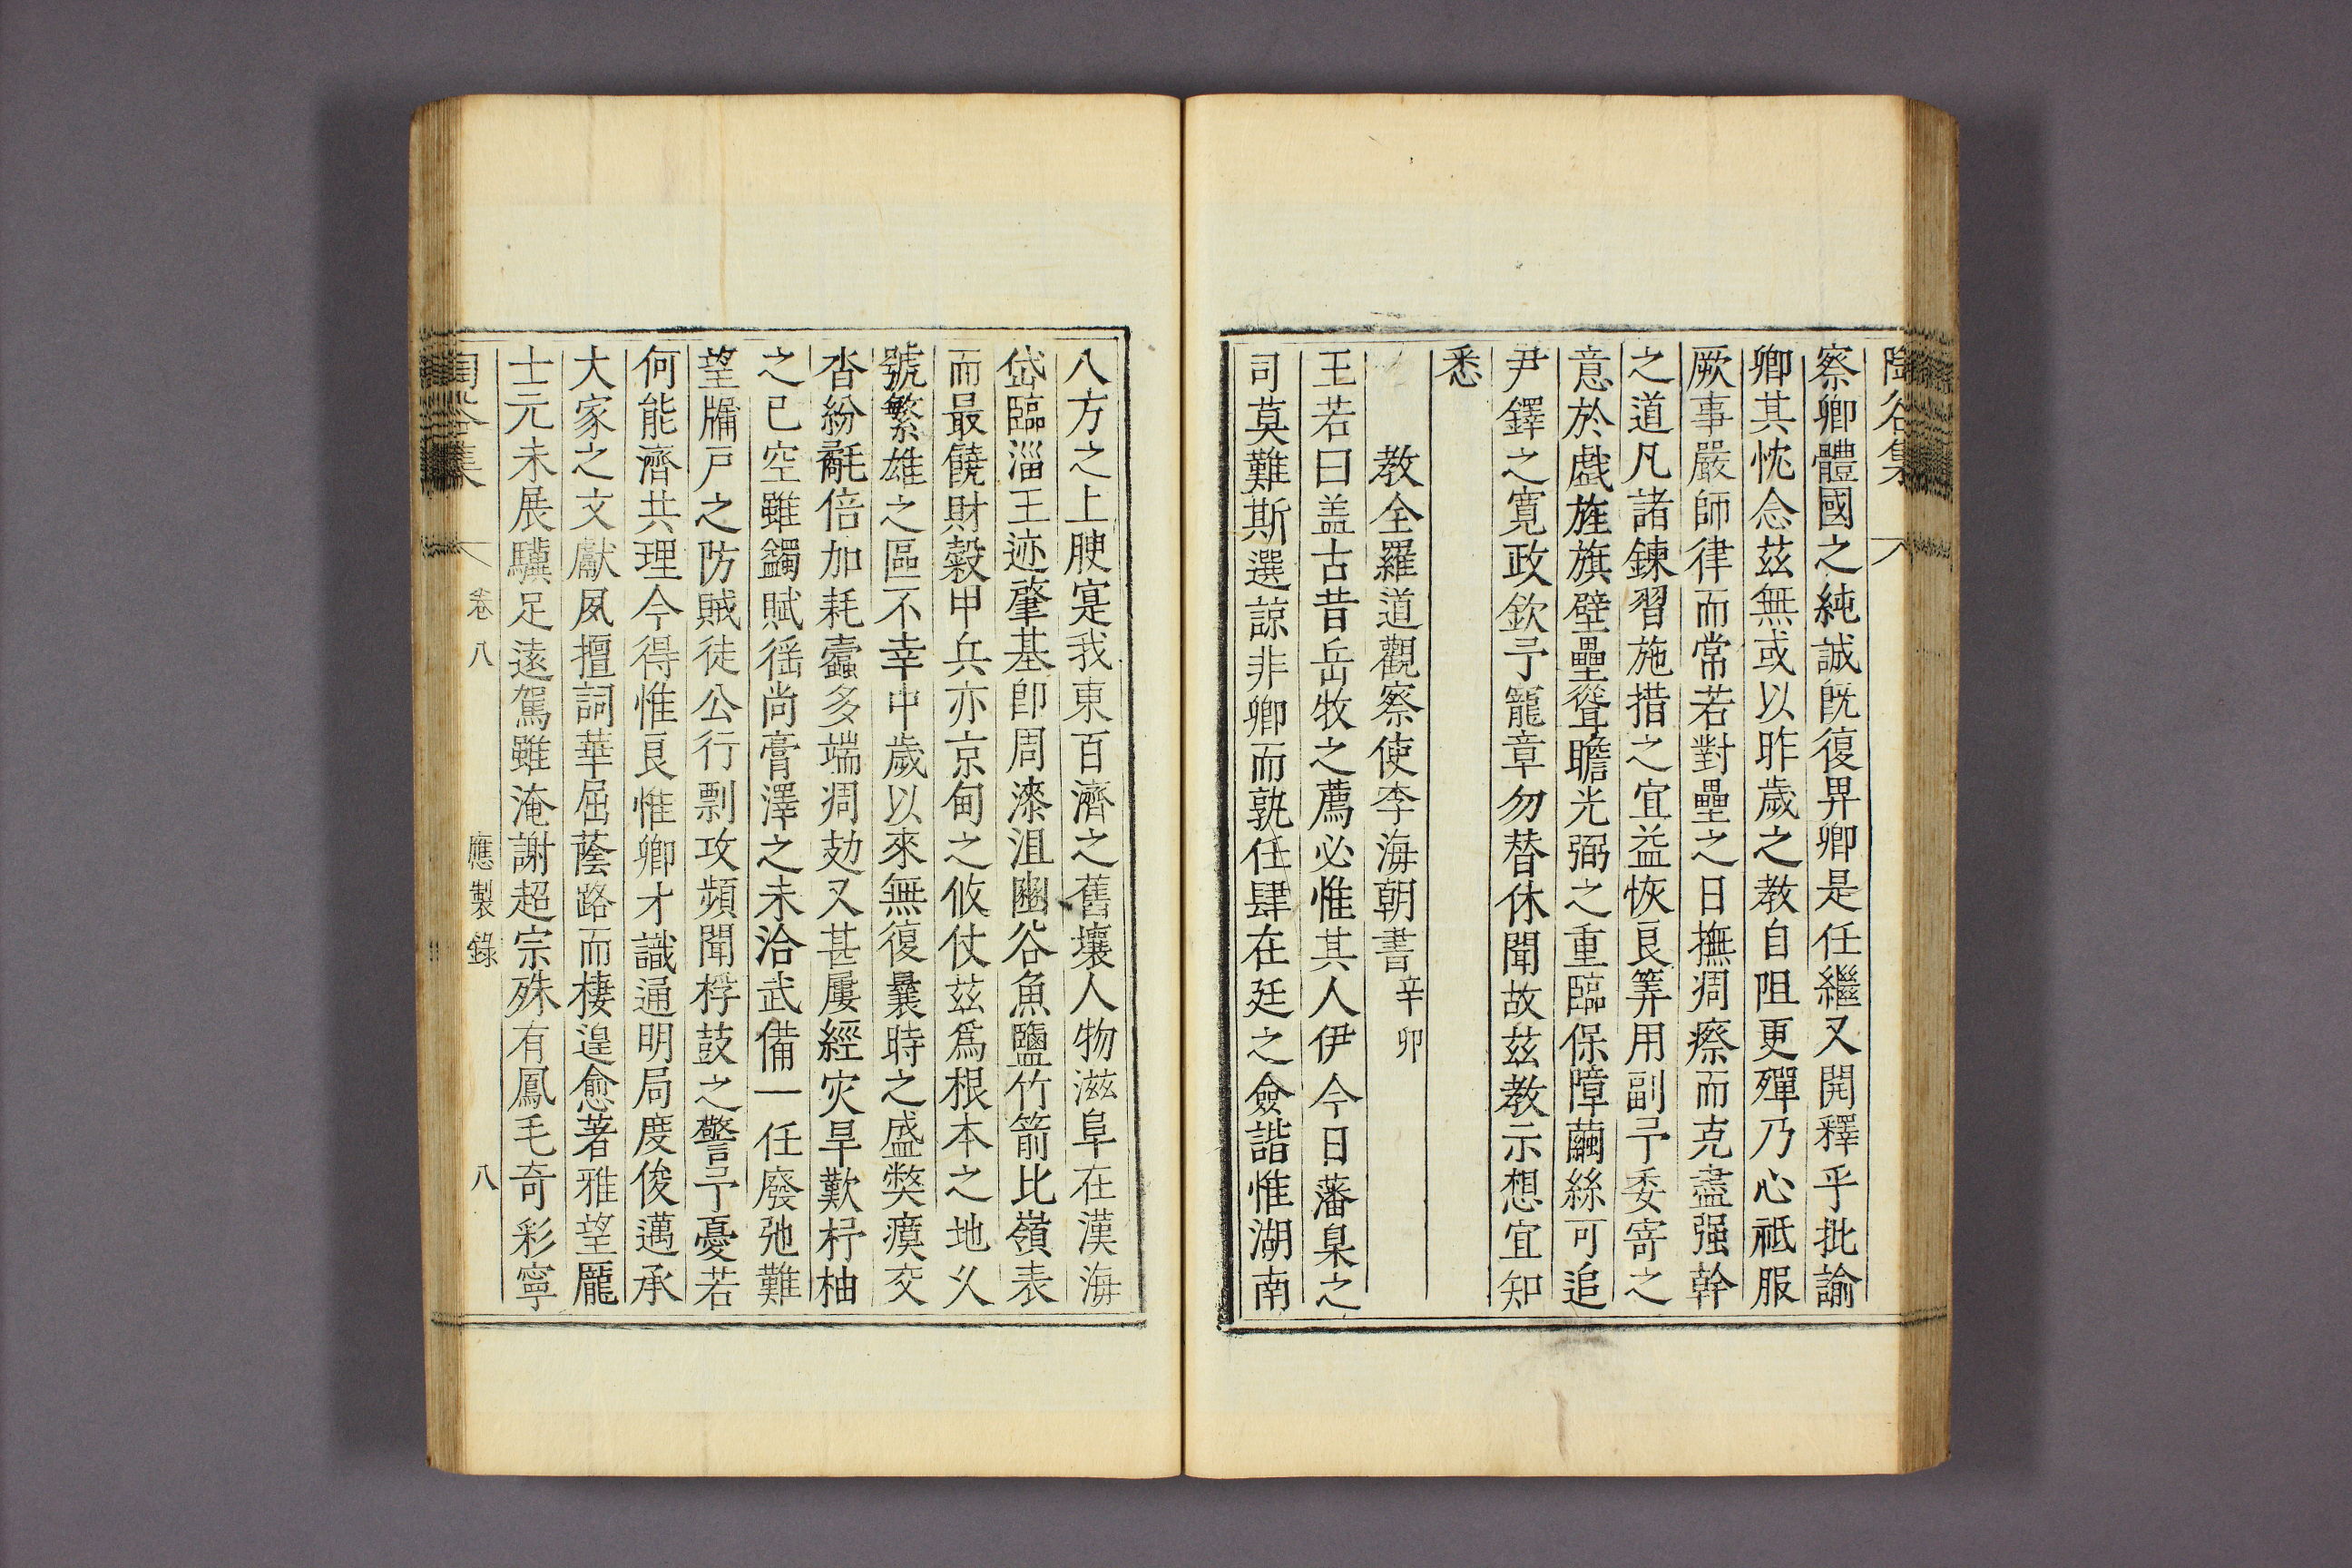 陶谷集
察卿體國之純誠旣復畀卿是任繼又開釋乎批諭
卿其忱念茲無或以昨歲之教自阻更殫乃心祗服
厥事嚴師律而常若對壘之日撫凋瘵而克盡强幹
之道凡諸鍊習施措之宜益恢良筭用副予委寄之
意於戱旌旗壁壘聳瞻光弼之重臨保障繭絲可追
尹鐸之寬政欽予寵章勿替休聞故茲教示想宜知
悉
教全羅道觀察使李海朝書辛卯
王若曰盖古昔岳牧之薦必惟其人伊今日藩臬之
司莫難斯選諒非卿而孰任肆在廷之僉諧惟湖南
八方之上腴寔我東百濟之舊壤人物滋阜在漢海
岱臨淄王迹肇基卽周漆沮豳谷魚鹽竹箭比嶺表
而最饒財穀甲兵亦京甸之攸仗茲爲根本之地乆
號繁雄之區不幸中歲以來無復曩時之盛獘瘼交
沓紛氄倍加耗蠹多端凋劾又甚屢經灾旱歎杼柚
之已空雖蠲賦徭尚膏澤之未洽武備一任廢弛難
望牖戶之防賊徒公行剽攻頻聞桴鼓之警予憂若
何能濟共理今得惟良惟卿才識通明局度俊邁承
大家之文獻夙擅詞華屈蔭路而棲遑愈著雅望龐
士元未展驥足遠駕雖淹謝超宗殊有鳳毛奇彩寧
陶谷集 卷八 應製錄 八